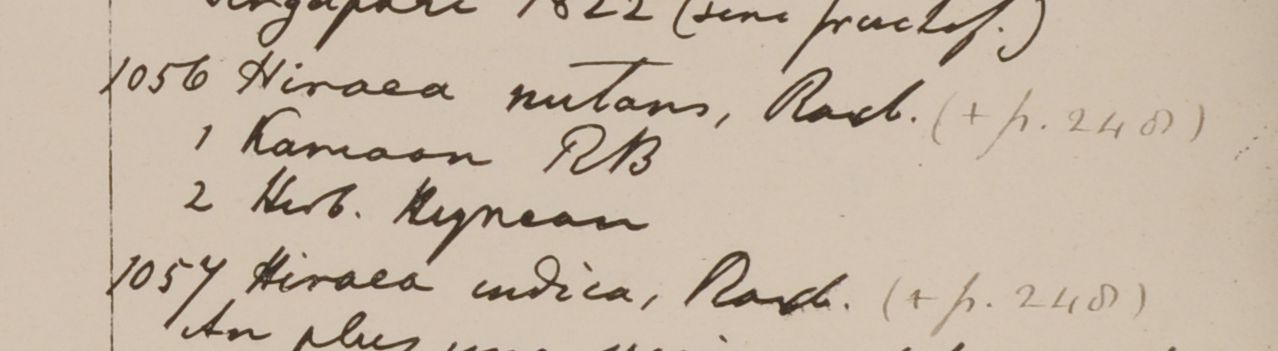 Singapore 1822 (sine fructif.)
1056 Hiraea nutans, Roxb. (+ p. 248)
1 Kamaon RB
2 Herb. Heynean
1057 Hiraea indica, Roxb. (+ p. 248)
An plus